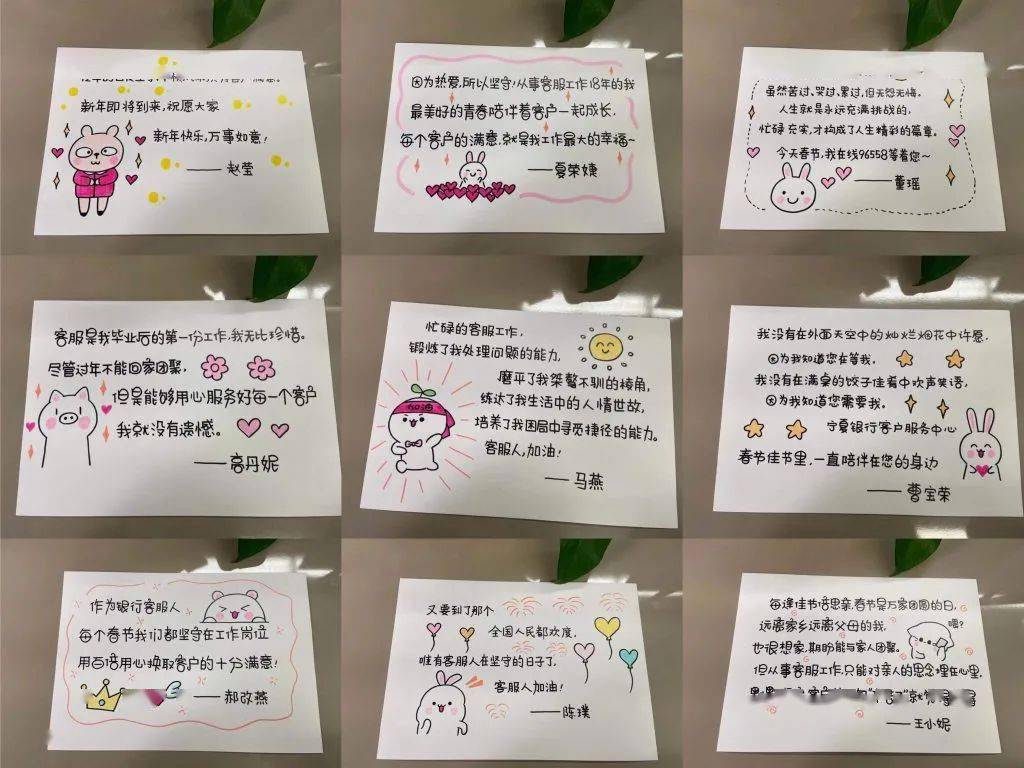 新年即将到来,祝愿大家
新年快乐,万事如意!
—— 赵莹
因为热爱,所以坚守!从事客服工作18年的我
最美好的青春陪伴着客户一起成长.
每个客户的满意.就是我工作最大的幸福~
——夏荣婕
虽然苦过、哭过、累过,但无怨无悔.
人生就是永远充满挑战的,
忙碌充实,才构成了人生精彩的篇章。
今天春节,我在线96558等着您~
——董瑶
客服是我毕业后的第一份工作,我无比珍惜。
尽管过年不能回家团聚,
但是能够用心服务好每一个客户
我就没有遗憾。
——高丹妮
忙碌的客服工作,
锻炼了我处理问题的能力,
磨平了我桀骜不驯的棱角,
练达了我生活中的人情世故,
加油
培养了我困局中寻觅捷径的能力。
客服人,加油!
——马燕
我没有在外面天空中的灿烂烟花中许愿,
因为我知道您在等我,
我没有在满桌的饺子佳肴中欢声笑语,
因为我知道您需要我。
宁夏银行客户服务中心
春节佳节里,一直陪伴在您的身边
——曹宝荣
作为银行客服人
每个春节我们都坚守在工作岗位
用百倍用心换取客户的十分满意!
——郝改燕
又要到了那个
全国人民都欢度,
唯有客服人在坚守的日子了,
客服人加油!
——陈璞
每逢佳节倍思亲,春节是万家团圆的日,
远离家乡远离父母的我,
嗯?
也很想家,期盼能与家人团聚。
但从事客服工作,只能对亲人的思念埋在心里,
——王小妮